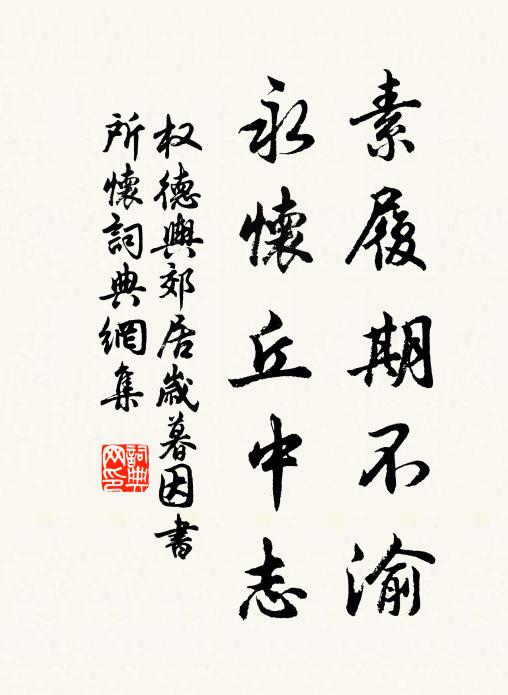 素履期不渝
永懷丘中志
权德輿郊居歲暮因書
所懷詞典網集
詞典网印